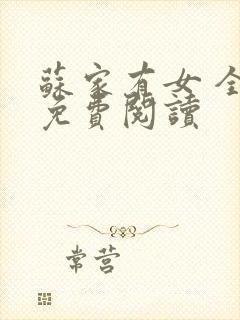 蘇家有女 全
免費閱讀
常营